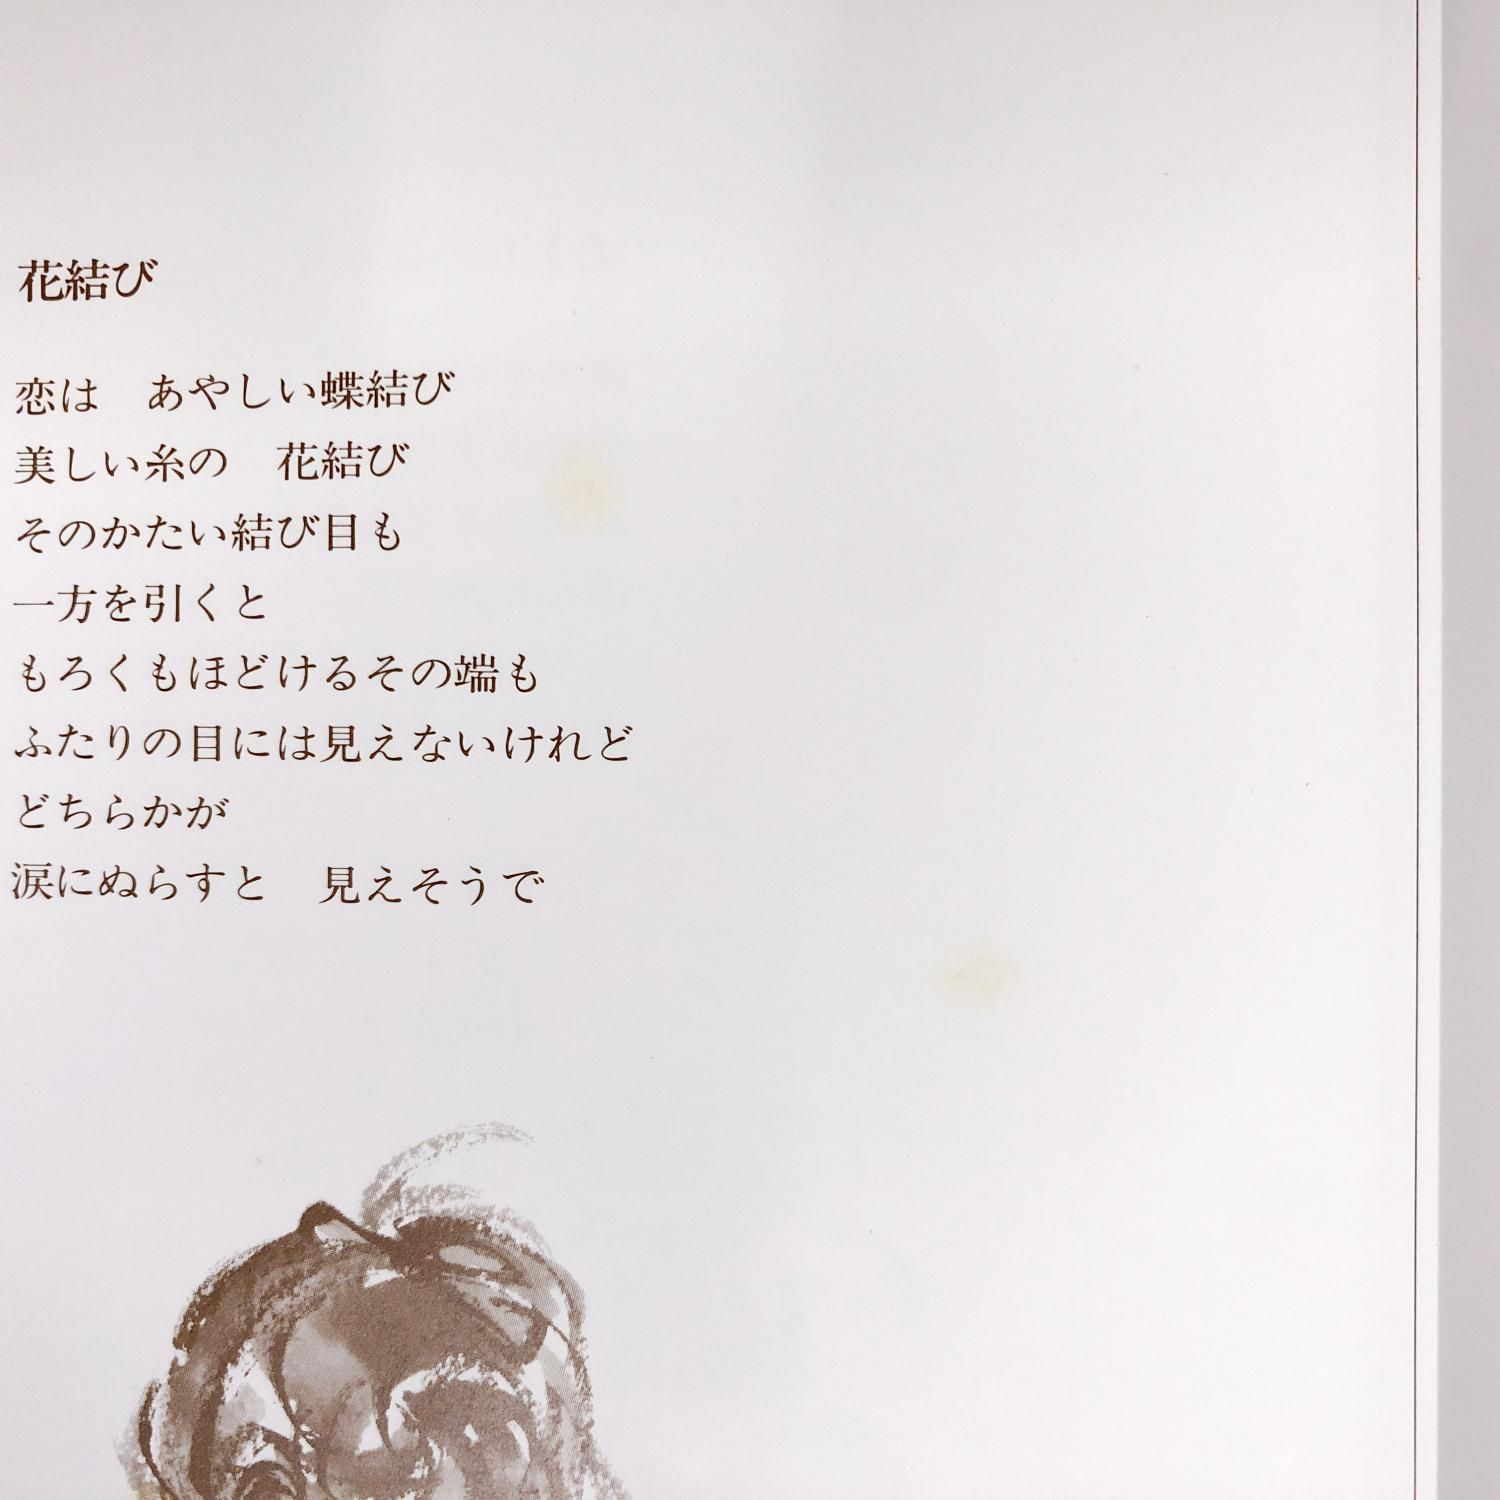 花結び
恋は　あやしい蝶結び
美しい糸の　花結び
そのかたい結び目も
一方を引くと
もろくもほどけるその端も
ふたりの目には見えないけれど
どちらかが
涙にぬらすと　見えそうで